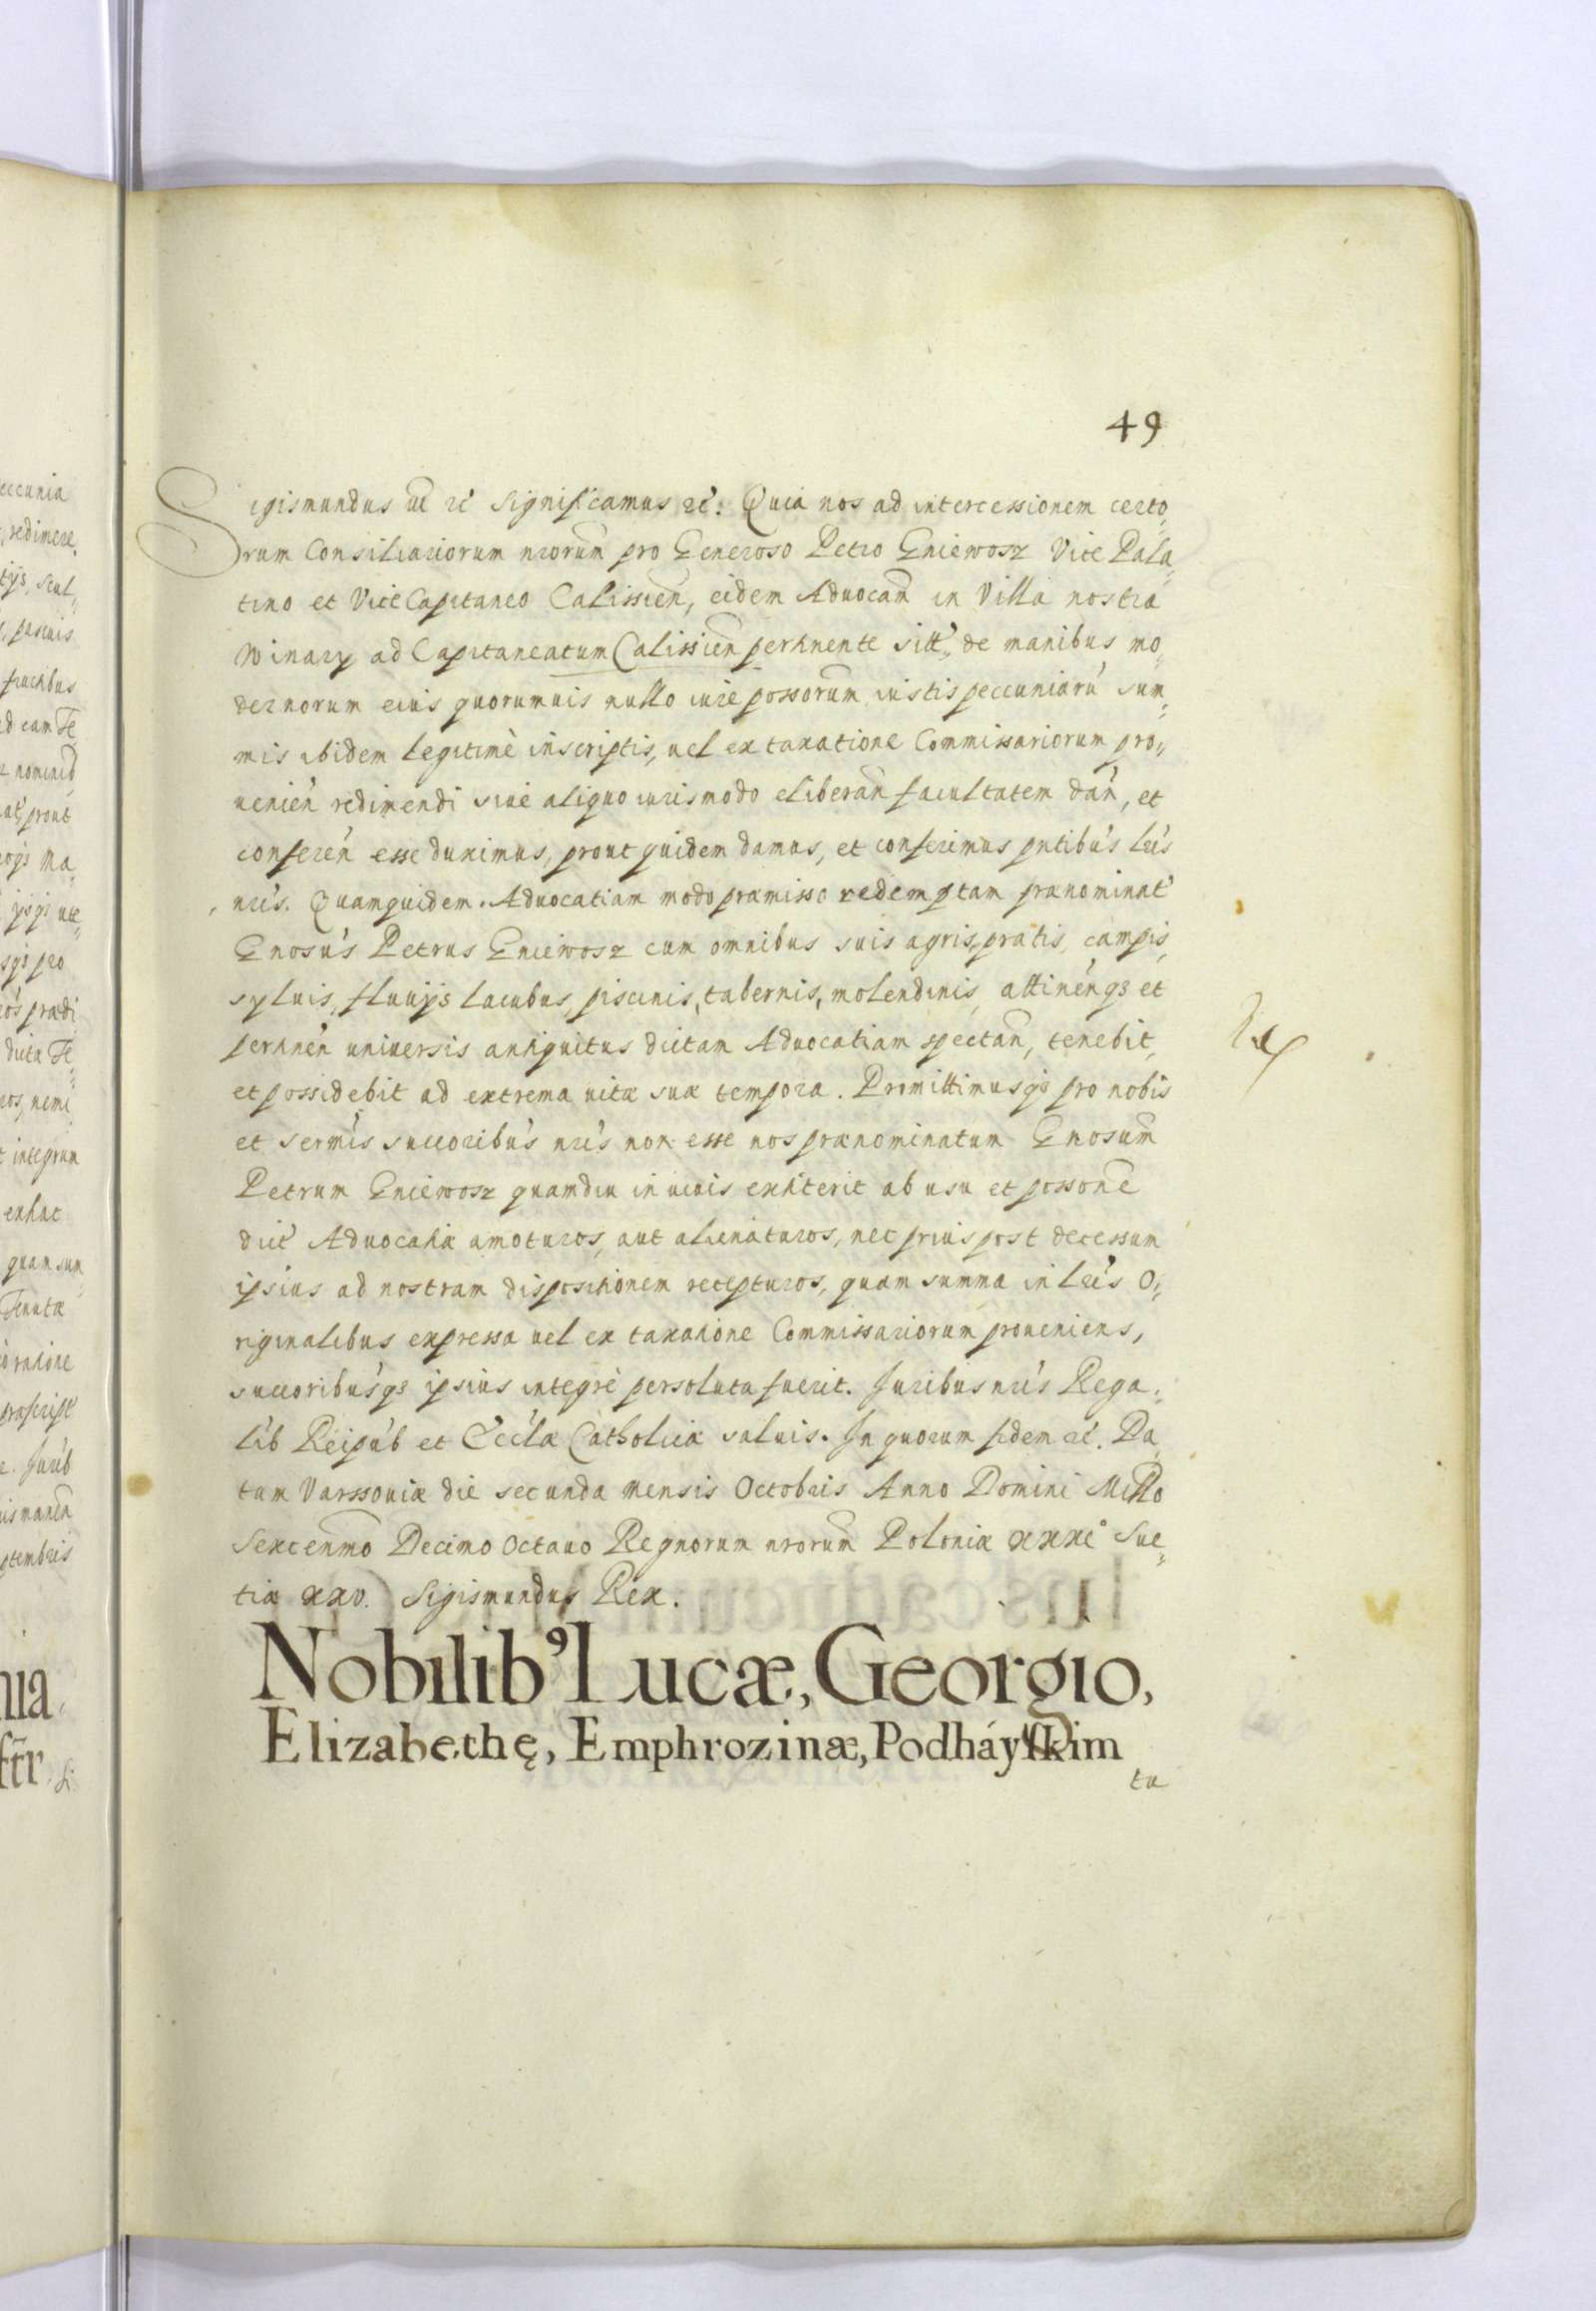 49
Sigismundus ut rc̃ Significamus rc̃: Quia nos ad intercessionem certo„
rum Consiliariorum nrorum̃ pro Generoso Petro Gniewosz Vice Pala„
tino et ViceCapitaneo Calissieñ, eidem Aduocam̃ in Villa nostra
Winary ad Capitaneatum Calissieñ pertinente sitt̃, de manibus mo„
dernorum eius quorumuis nullo iure possorum̃ iustis peccuniarũ sum„
mis ibidem legitimè inscriptis, uel ex taxatione Commissariorum pro„
uenień redimendi siue aliquo iurismodo eliberañ facultatem dań, et
conferéń esse duximus, prout quidem damus, et conferimus pntibus lris
nris. Quamquidem Aduocatiam modo præmisso redemptam prænominat̃
Gnosus Petrus Gniewosz cum omnibus suis agris, pratis, campis,
syluis, fluuijs lacubus, piscinis, tabernis, molendinis, attinenq3 et
pertineń uniuersis antiquitus dictam Aduocatiam spectañ, tenebit,
et possidebit ad extrema uitæ suæ tempora. Promittimusq3 pro nobis
et sermis succoribus nris non esse nos prænominatum Gnosum̃
Petrum Gniewosz quamdiu in uiuis extiterit ab usu et possone
dict̃ Aduocatiæ amoturos, aut alienaturos, nec prius post decessum
ipsius ad nostram dispositionem recepturos, quam summa in lris O„
riginalibus expressa uel ex taxatione Commissariorum proueniens,
succoribusq3 ipsius integrè persoluta fuerit. Juribus nris Rega„
lib Reipub et Eccla Catholicæ saluis. In quorum fidem rc̃. Da„
tum Varssouiæ die secunda mensis Octobris Anno Domini Millo
Sexcenmo Decimo octauo Regnorum nrorum̃ Poloniæ xxxi° Sue„
tiæ xxv. Sigismundus Rex.
Nobilib⁹ Lucæ, Georgio,
Elizabethę, Emphrozinæ, Podháyskim
tu